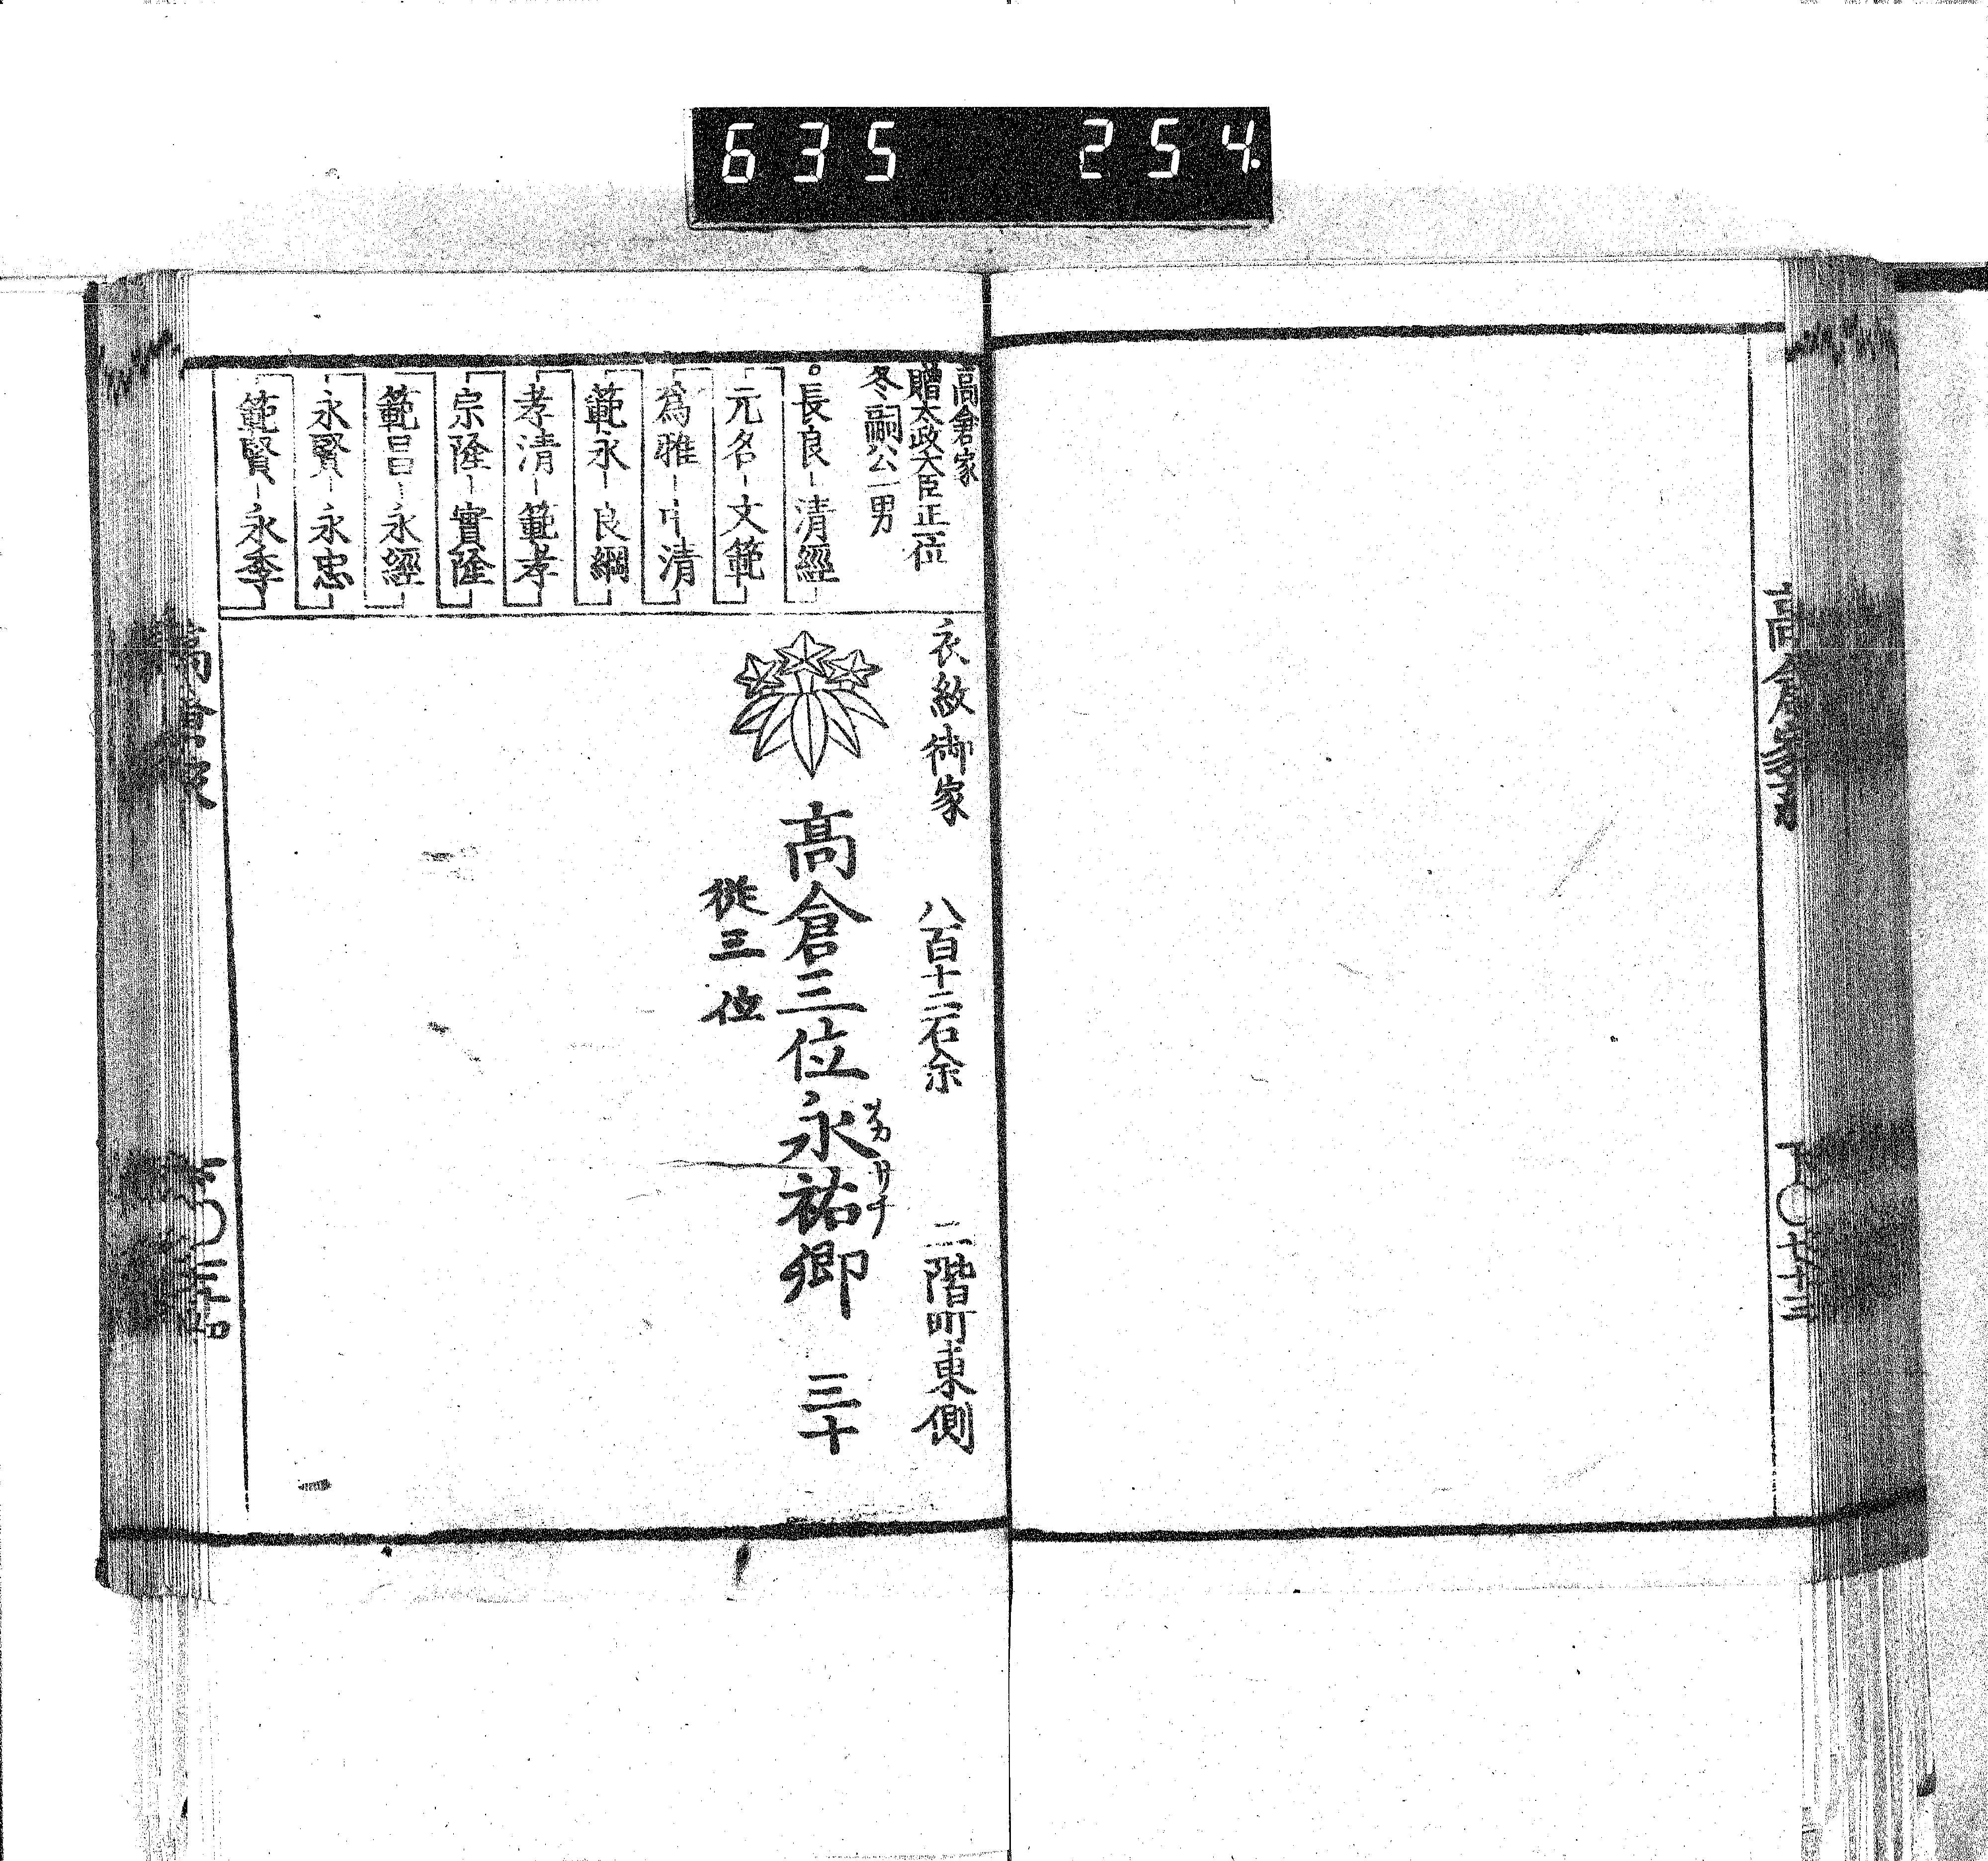 635 254.
高倉家
下〇七十三
高倉家
贈太政大臣正一位
冬嗣公二男
長良－清經
元名－文範
爲雅－中清
範永－良綱
孝清－範孝
宗隆－實隆
範昌－永經
永賢－永忠
範賢－永季
衣紋御家 八百十二石余 二階町東側
高倉三位永祐卿 三十
ナガ サチ
從三位
高倉家